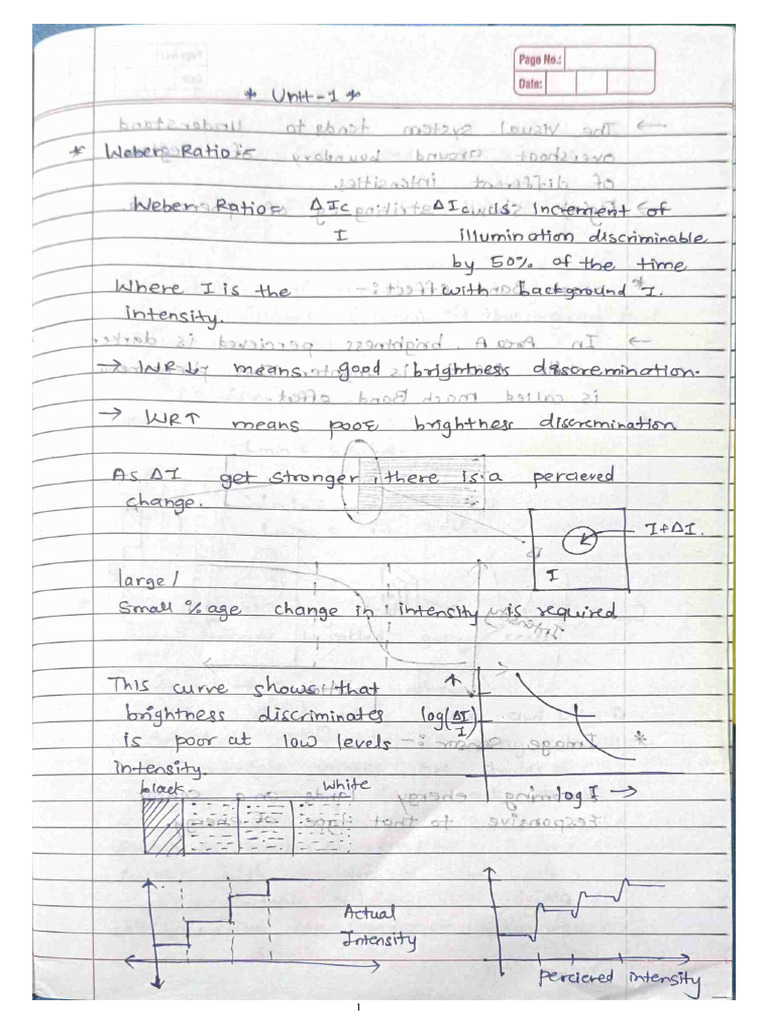 Page No.:
Date:
* Unit-1 *
* Weber Ratio :-
Weber Ratio = ΔIc ΔIc is increment of
I illumination discriminable
by 50% of the time
Where I is the with background * I.
intensity.
→ WR↓ means good brightness discremination.
→ WR↑ means poor brightness discremination
As ΔI get stronger, there is a percieved
change.
I+ΔI.
I
large/
Small %age change in intensity is required
This curve shows that
brightness discriminates log(ΔI/I)
is poor at low levels *
intensity.
log I →
black white
Actual
Intensity
percieved intensity
1